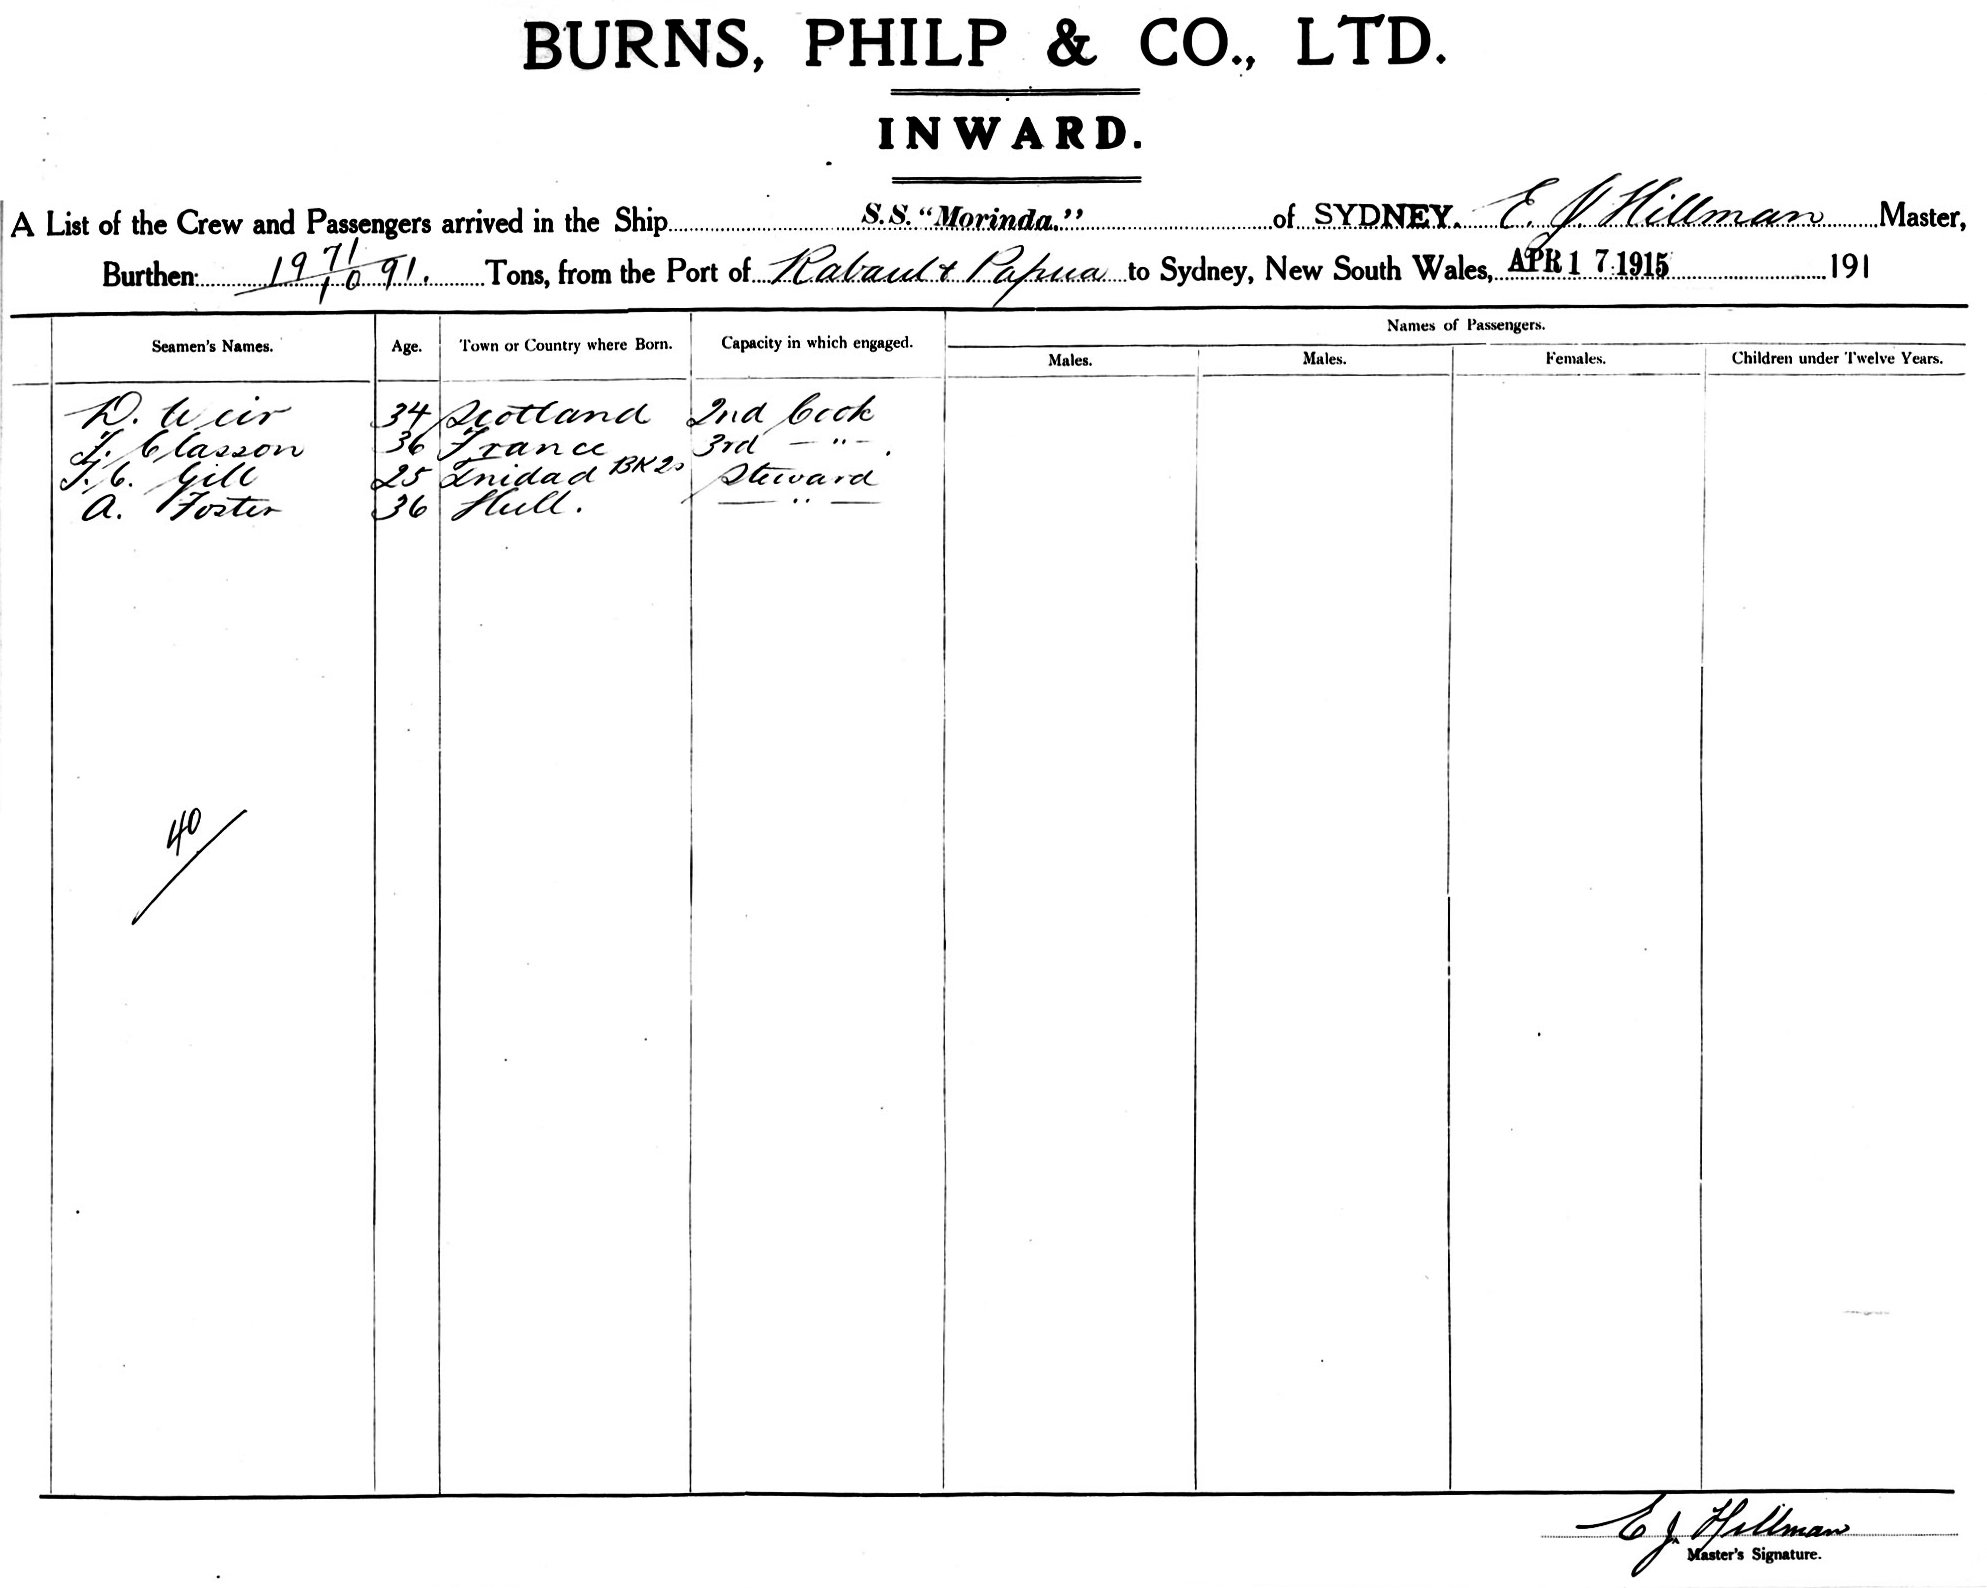 BURNS, PHILP & CO., LTD.
INWARD.
A List of the Crew and Passengers arrived in the Ship S.S. "Morinda." of SYDNEY. E. J. Hillman Master,
Burthen: 19 71/10 91. Tons, from the Port of Rabaul & Papua to Sydney, New South Wales, APR 17 1915 191
Names of Passengers.
Seamen's Names. Age. Town or Country where Born. Capacity in which engaged. Males. Males. Females. Children under Twelve Years.
D. Weir 34 Scotland 2nd Cook
J. Classon 36 France 3rd — " — .
J. C. Gill 25 Trinidad Steward
A. Foster 36 Hull. — " —
40
E J. Hillman
Master's Signature.